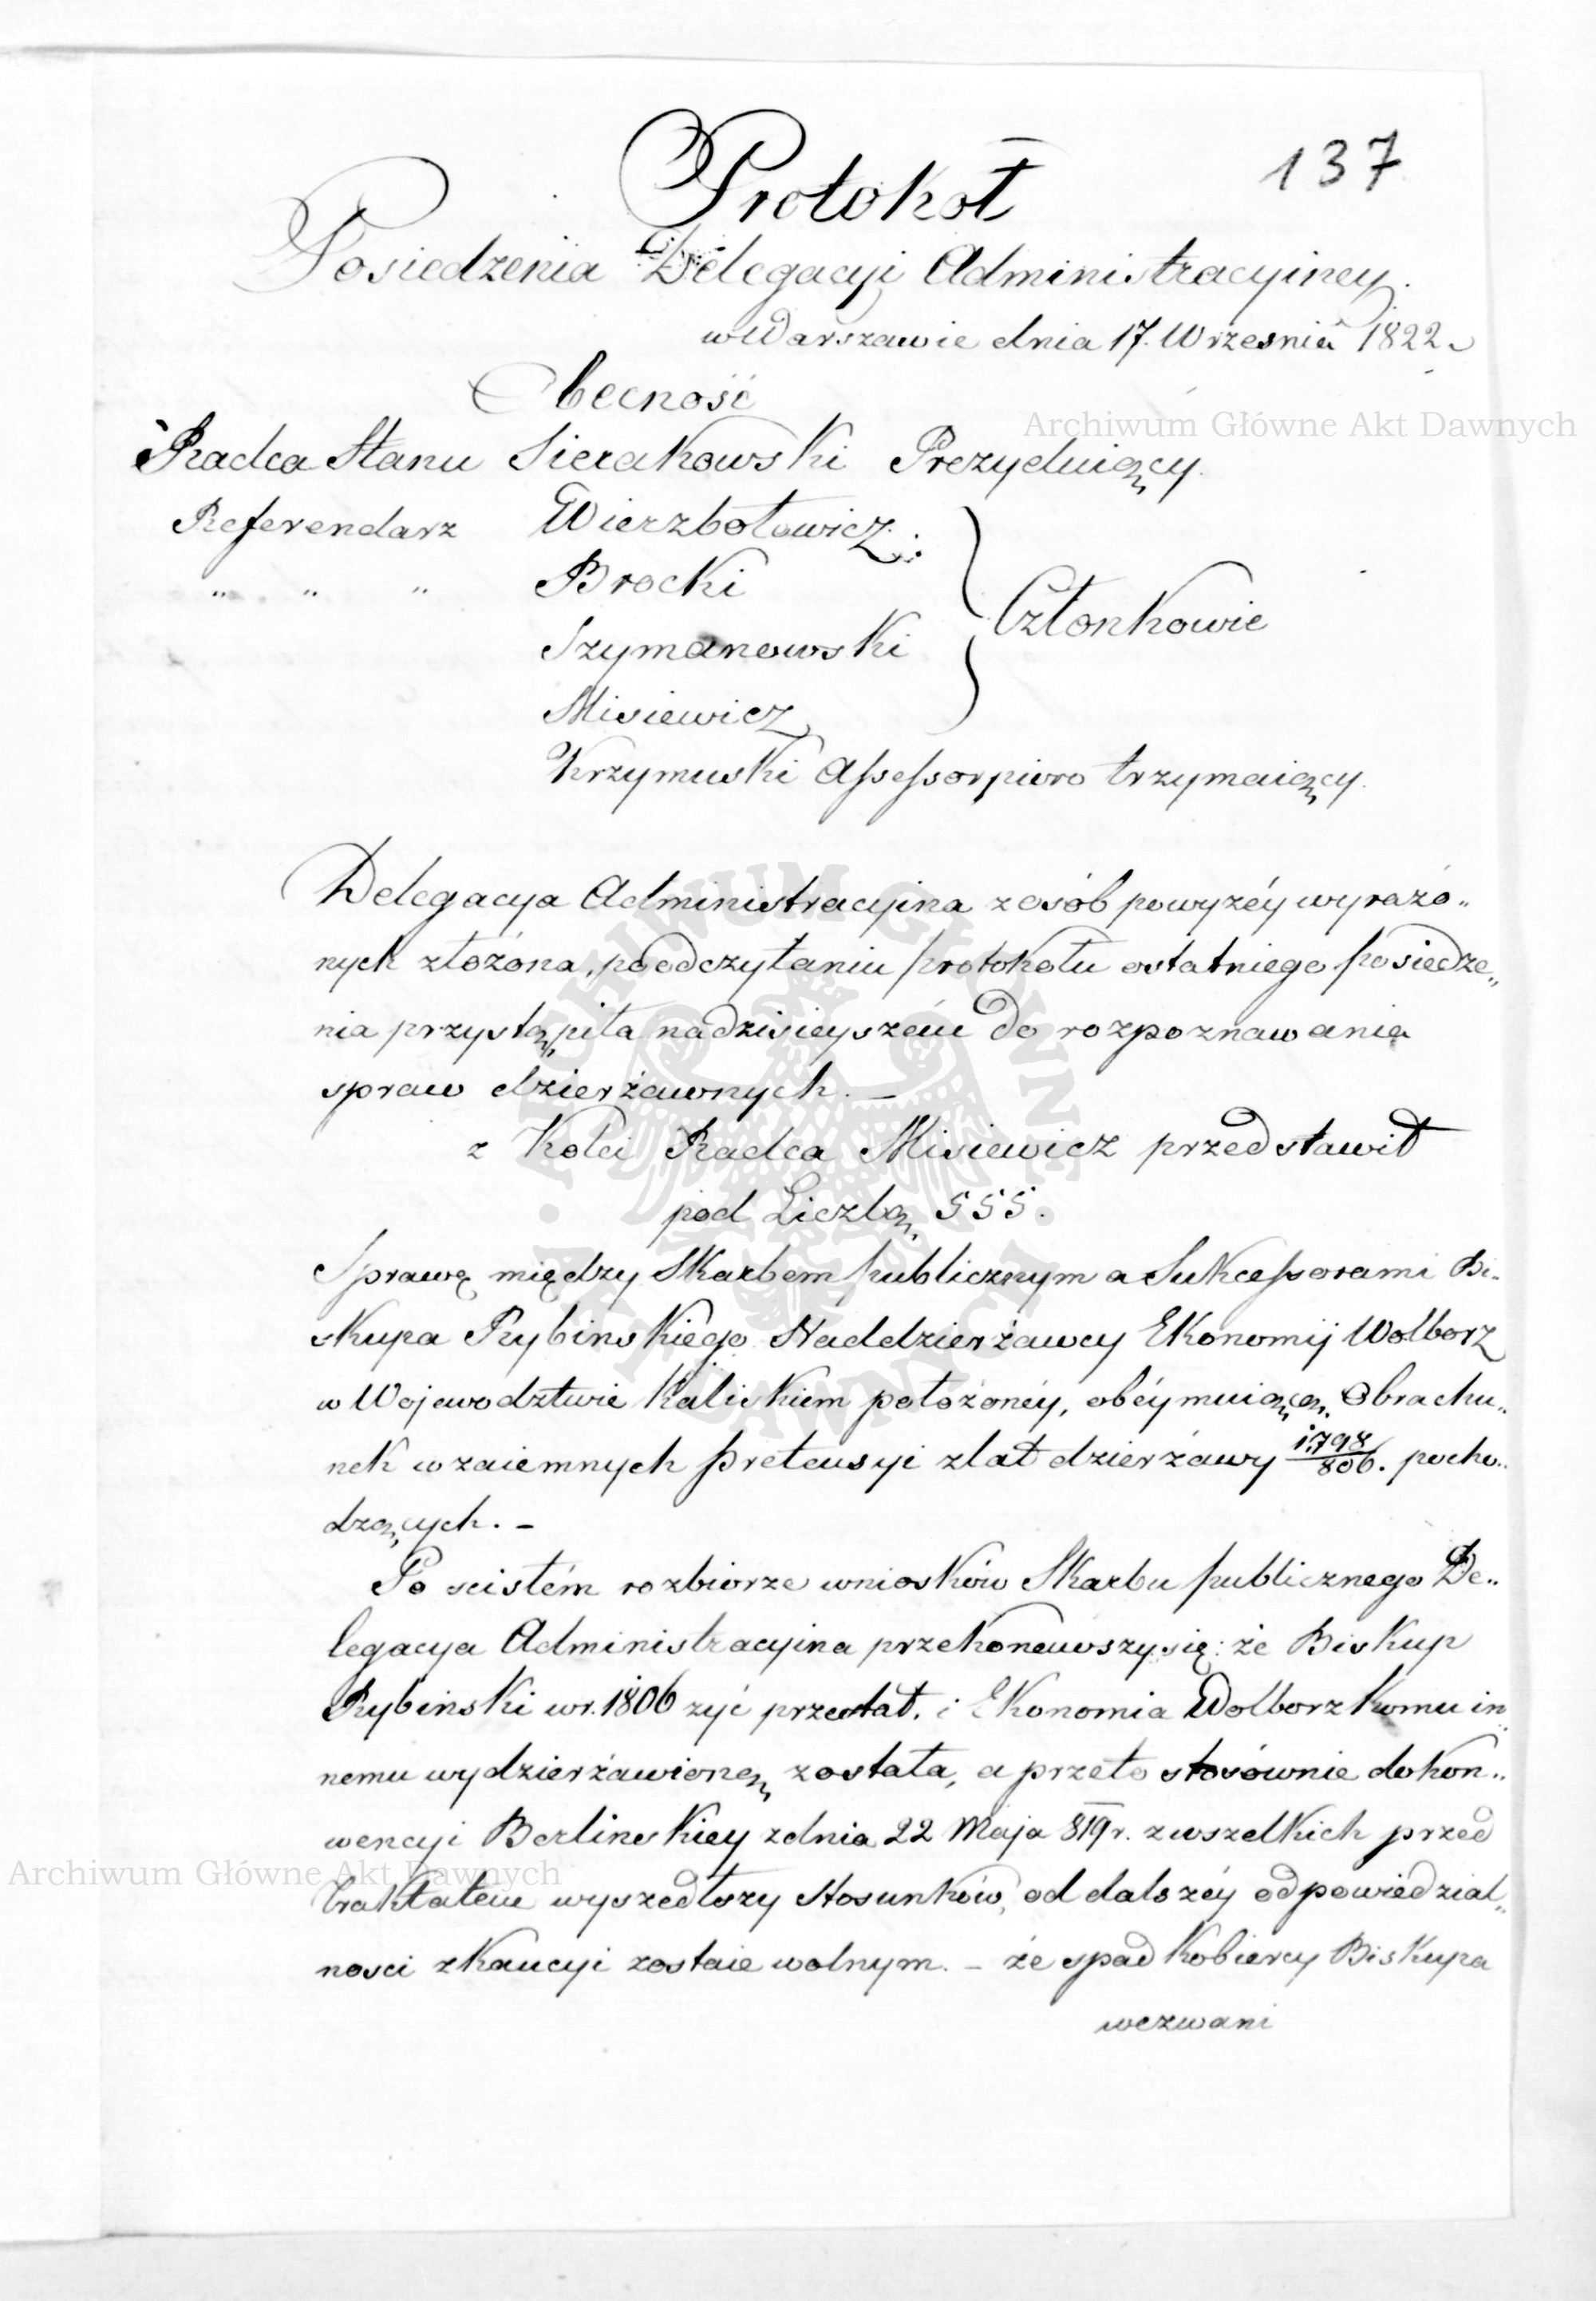 137
Protokoł
Posiedzenia Delegacyi Administracyiney.
w Warszawie dnia 17. Września 1822.
Obecność
Archiwum Główne Akt Dawnych
Radca Stanu Sierakowski Prezyduiący.
Referendarz Wierzbołowicz
" " " Brocki
Członkowie
Szymanowski
Misiewicz
Krzymuski Assessor pioro trzymaiący.
Delegacya Administracyina z osób powyżéy wyrażo„
nych złożona, po odczytaniu protokołu ostatniego posiedze„
nia przystąpiła na dzisieyszém do rozpoznawania
spraw dzierżawnych. —
z Kolei Radca Misiewicz przedstawił
pod Liczbą 555.
Sprawę między Skarbem publicznym a Sukcessorami Bi„
skupa Rybinskiego Naddzierżawcy Ekonomij Wolborz
w Wojewodztwie Kaliskiem położonéy, obéymuiącą Obrachu„
nek wzaiemnych pretensyi z lat dzierżawy 1798/806. pocho„
dzących. —
Po scistém rozbiorze wniosków Skarbu publicznego De„
legacya Administracyina przekonawszy się: że Biskup
Rybinski w r. 1806 żyć przestał, i Ekonomia Wolborz komu in„
nemu wydzierżawioną została, a przeto stosównie do kon„
wencyi Berlinskiey z dnia 22 Maja 819 r. z wszelkich przed
Archiwum Główne Akt Dawnych
traktatem wyszedłszy stosunków, od dalszéy odpowiedzial„
nosci z kaucyi zostaie wolnym. — że spadkobiercy Biskupa
wezwani
ARCHIWUM GŁÓWNE AKT DAWNYCH